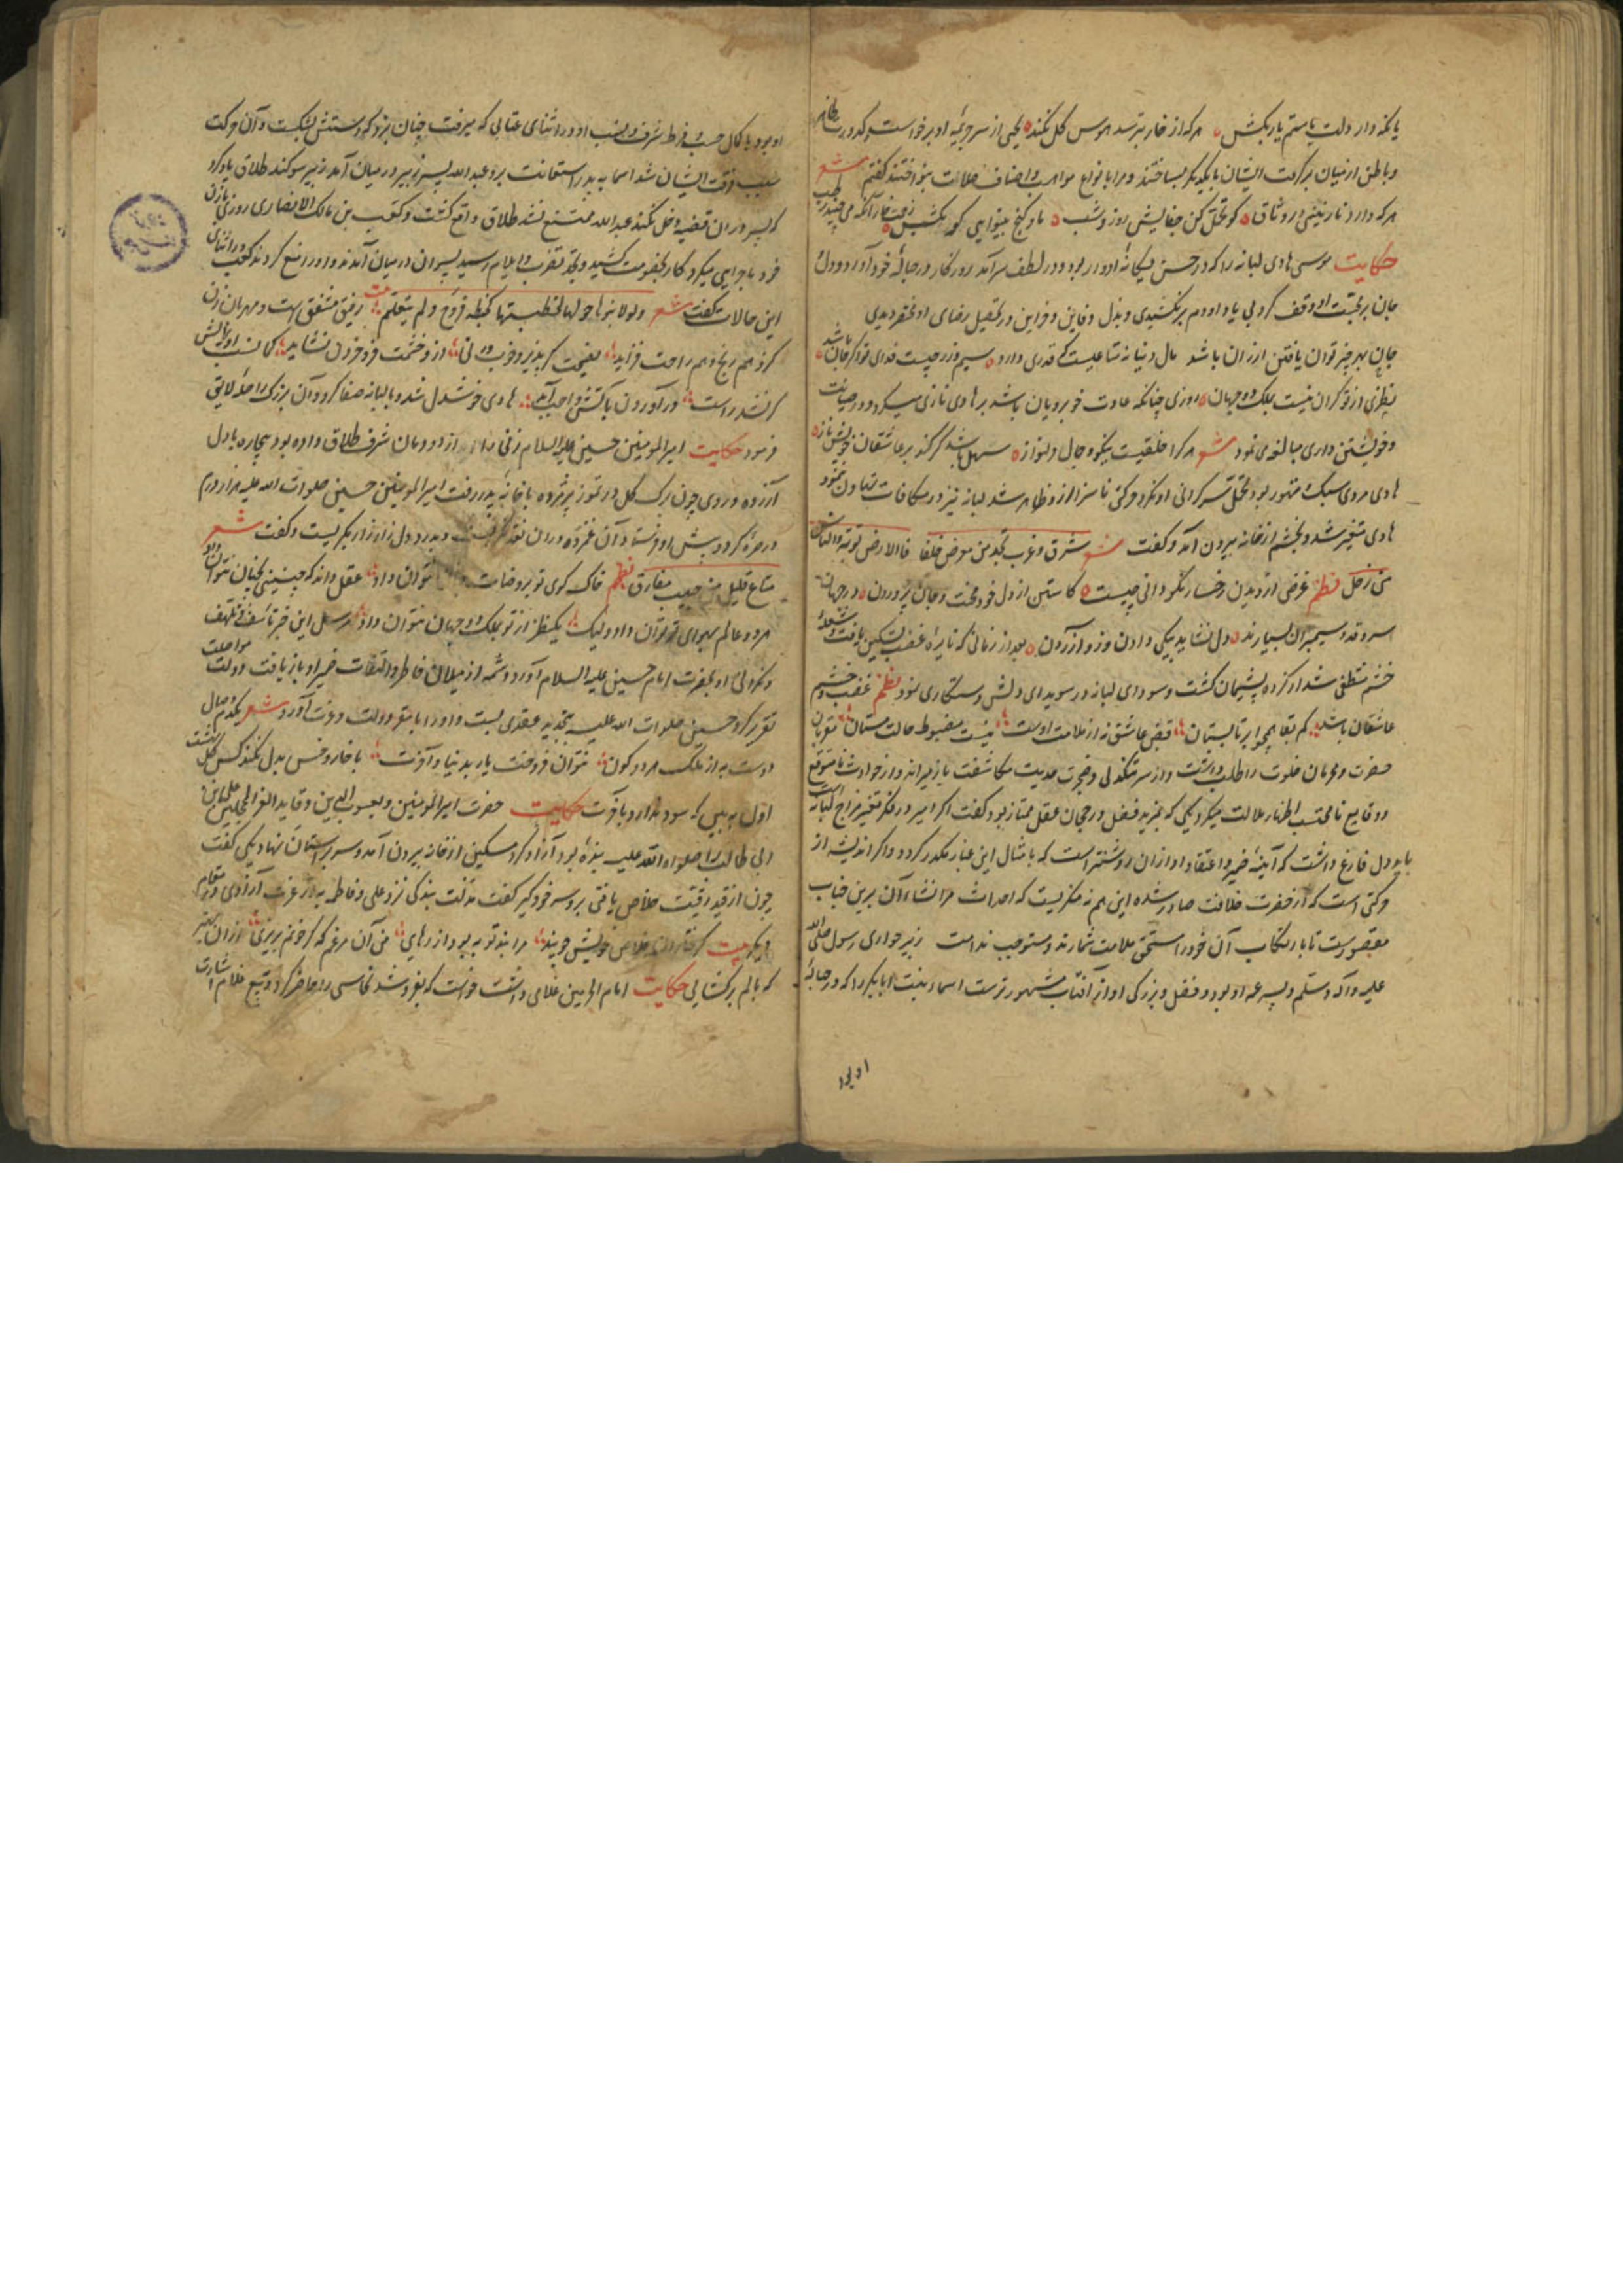 یا مکن دار دولت یا ستم یار بکش هر که از خار بترسد هوس گل نکند یحیی از سر جریمه او برخواست و کدورت ظاهر
و باطن از میان برگرفت ایشان با یکدیگر بساختند و مرا بانواع مواهب و اصناف صلات بنواختند گفتم شعر
هر که دارد نازنینی در وثاق کو تحمل کن جفایش روز و شب
حکایت موسی هادی لبانه را که در حسن یگانه ادوار بود و در لطف سرآمد روزگار در حباله خود آورد و دل
جان بر محبت او وقف کرد بی یاد او دم بر نکشیدی و بذل دفاین و خزاین در تحصیل رضای او مختصر دیدی
جان بهر چیز توان یافتن ارزان باشد مال دنیا نه متاعیست که قدری دارد سیم و زر چیست فدای تو اگر جان باشد
نظری از تو گران نیست بملک دو جهان روزی چنانکه عادت خوبرویان باشد بر هادی نازی میکرد و در صیانت
و خویشتن داری مبالغه می نمود شعر هر کرا خلقیست نیکو و جمال دلنواز سهل باشد گر کند بر عاشقان خویش ناز
هادی مردی سبک متهور بود تحمل سرگرانی او نکرد و حرکتی ناسزا ازو ظاهر شد لبانه نیز در مکافات تهاون ننمود
هادی متغیر شد و بخشم از خانه بیرون آمد و گفت شعر شرق و غرب تجد من معرض خلفا فالارض من تربة والناس
من رجل نظم غرض از دیدن رخسار نکو دانی چیست کاستن از دل خود محنت و جان پروردن در جهان
سرو قد و سیمبران بسیارند دل نشاید بیکی دادن و زو آزردن بعد از زمانی که نایره غضب تسکین یافت و شعله
خشم منطفی شد از کرده پشیمان گشت و سودای لبانه در سویدای دلش دستکاری نمود نظم غضب و خشم
عاشقان باشد کم بقا همچو ابر تابستان قبض عاشق نه از ملامت اوست نیست مضبوط حالت مستان مقربان
حضرت و محرمان خلوت را طلب داشت و از سر تنگدلی و ضجرت حدیث مکاشفت باز میراند و از حوادث نامتوقع
و وقایع نامحتسب اظهار ملالت میکرد یکی که بمزید فضل و رجحان عقل ممتاز بود گفت اگر امیر در فکر تغیر مزاج لبانه
باید دل فارغ داشت که آینه ضمیر و اعتقاد او از ان روشنتر است که بامثال این غبار مکدر گردد و اگر اندیشه از
حرکتی است که از حضرت خلافت صادر شده این هم نه منکریست که احداث مر انشاء آن برین جناب
مقصورست تا بارتکاب آن خود را مستحق ملامت شمارند و مستوجب ندامت زبیر حواری رسول صلی الله
علیه و آله و سلم و پسر عمه او بود و فضل و بزرگی او از آفتاب مشهورترست اسماء بنت ابا بکر را که در حباله
او بود
او بود با کمال حسب و فرط شرف و نسب او در اثنای عتابی که میرفت چنان بزد که دستش بشکست و آن حرکت
سبب فرقت ایشان شد اسما به پدر استعانت برد عبدالله پسر زبیر در میان آمد زبیر سوگند طلاق یاد کرد
که پسر در ان قضیه دخل نکند عبدالله ممتنع نشد طلاق واقع گشت و کعب بن مالک الانصاری روزی با زن
خود ماجرایی میکرد کار بخصومت کشید و بحد تضرب و ایلام رسید پسران در میان آمدند و او را منع کردند کعب در اثنای
این حالات میگفت شعر ولولا بنوها حولها لخطبتها کخبطة فروج ولم یتعلم بیت رفیق مشفق است و مهربان زن
کزو هم رنج و هم راحت فزاید
گر نشد راست در آوردن باکشتی واجب آید هادی خوشدل شد و با لبانه صفا کرد و آن بزرگ را صله لایق
فرمود حکایت امیر المومنین حسین علیه السلام زنی را از دودمان شرف طلاق داده بود بیچاره با دل
آزرده و روی چون برگ گل در تموز پژمرده با خانه پدر رفت امیر المومنین حسین صلوات الله علیه هزار درم
در صره کرد و پیش او فرستاد آن غمزده در ان نقد نگریست و بدرد دل زار زار بگریست و گفت شعر
متاع قلیل من حبیب مفارق نظم خاک کوی تو بروضات نتوان داد عقل داند که چنینی بچنان نتوان داد
هر دو عالم بهوای تو توان داد ولیک یکنظر از تو بملک دو جهان نتوان داد مرسل این خبر تاسف و تلهف
و نگرانی او بحضرت امام حسین علیه السلام آورد و شمه از میلان خاطر و التفات ضمیر او باز یافت دولت مواصلت
تقریر کرد حسین صلوات الله علیه بتجدید عقدی بست و او را با مقر دولت و عزت آورد شعر یکدم وصال
دوست به از ملک هر دو کون نتوان فروخت یار بدنیا و آخرت با خار و خس بدل نکند کس گل بهشت
اول ببین که سود ندارد بآخرت حکایت حضرت امیر المومنین و یعسوب الدین و قاید الغر المحجلین علی بن
ابی طالب را صلواة الله علیه بنده بود آزاد کرد مسکین از خانه بیرون آمد و سر بر آستان نهاد یکی گفت
چون از قید رقیت خلاص یافتی برو سر خود گیر گفت مذلت بندگی نزد علی و فاطمه به از عزت آزادی در مقام
دیگر بیت گرفتاران خلاص خویش جویند مرا بند تو به بود از رهایی من آن مرغم که گر خونم بریزی از ان بهتر
که بالم برگشایی حکایت امام الحرمین غلامی داشت خواست که بفروشد نخاسی را حاضر کرد و ببیع غلام اشارت